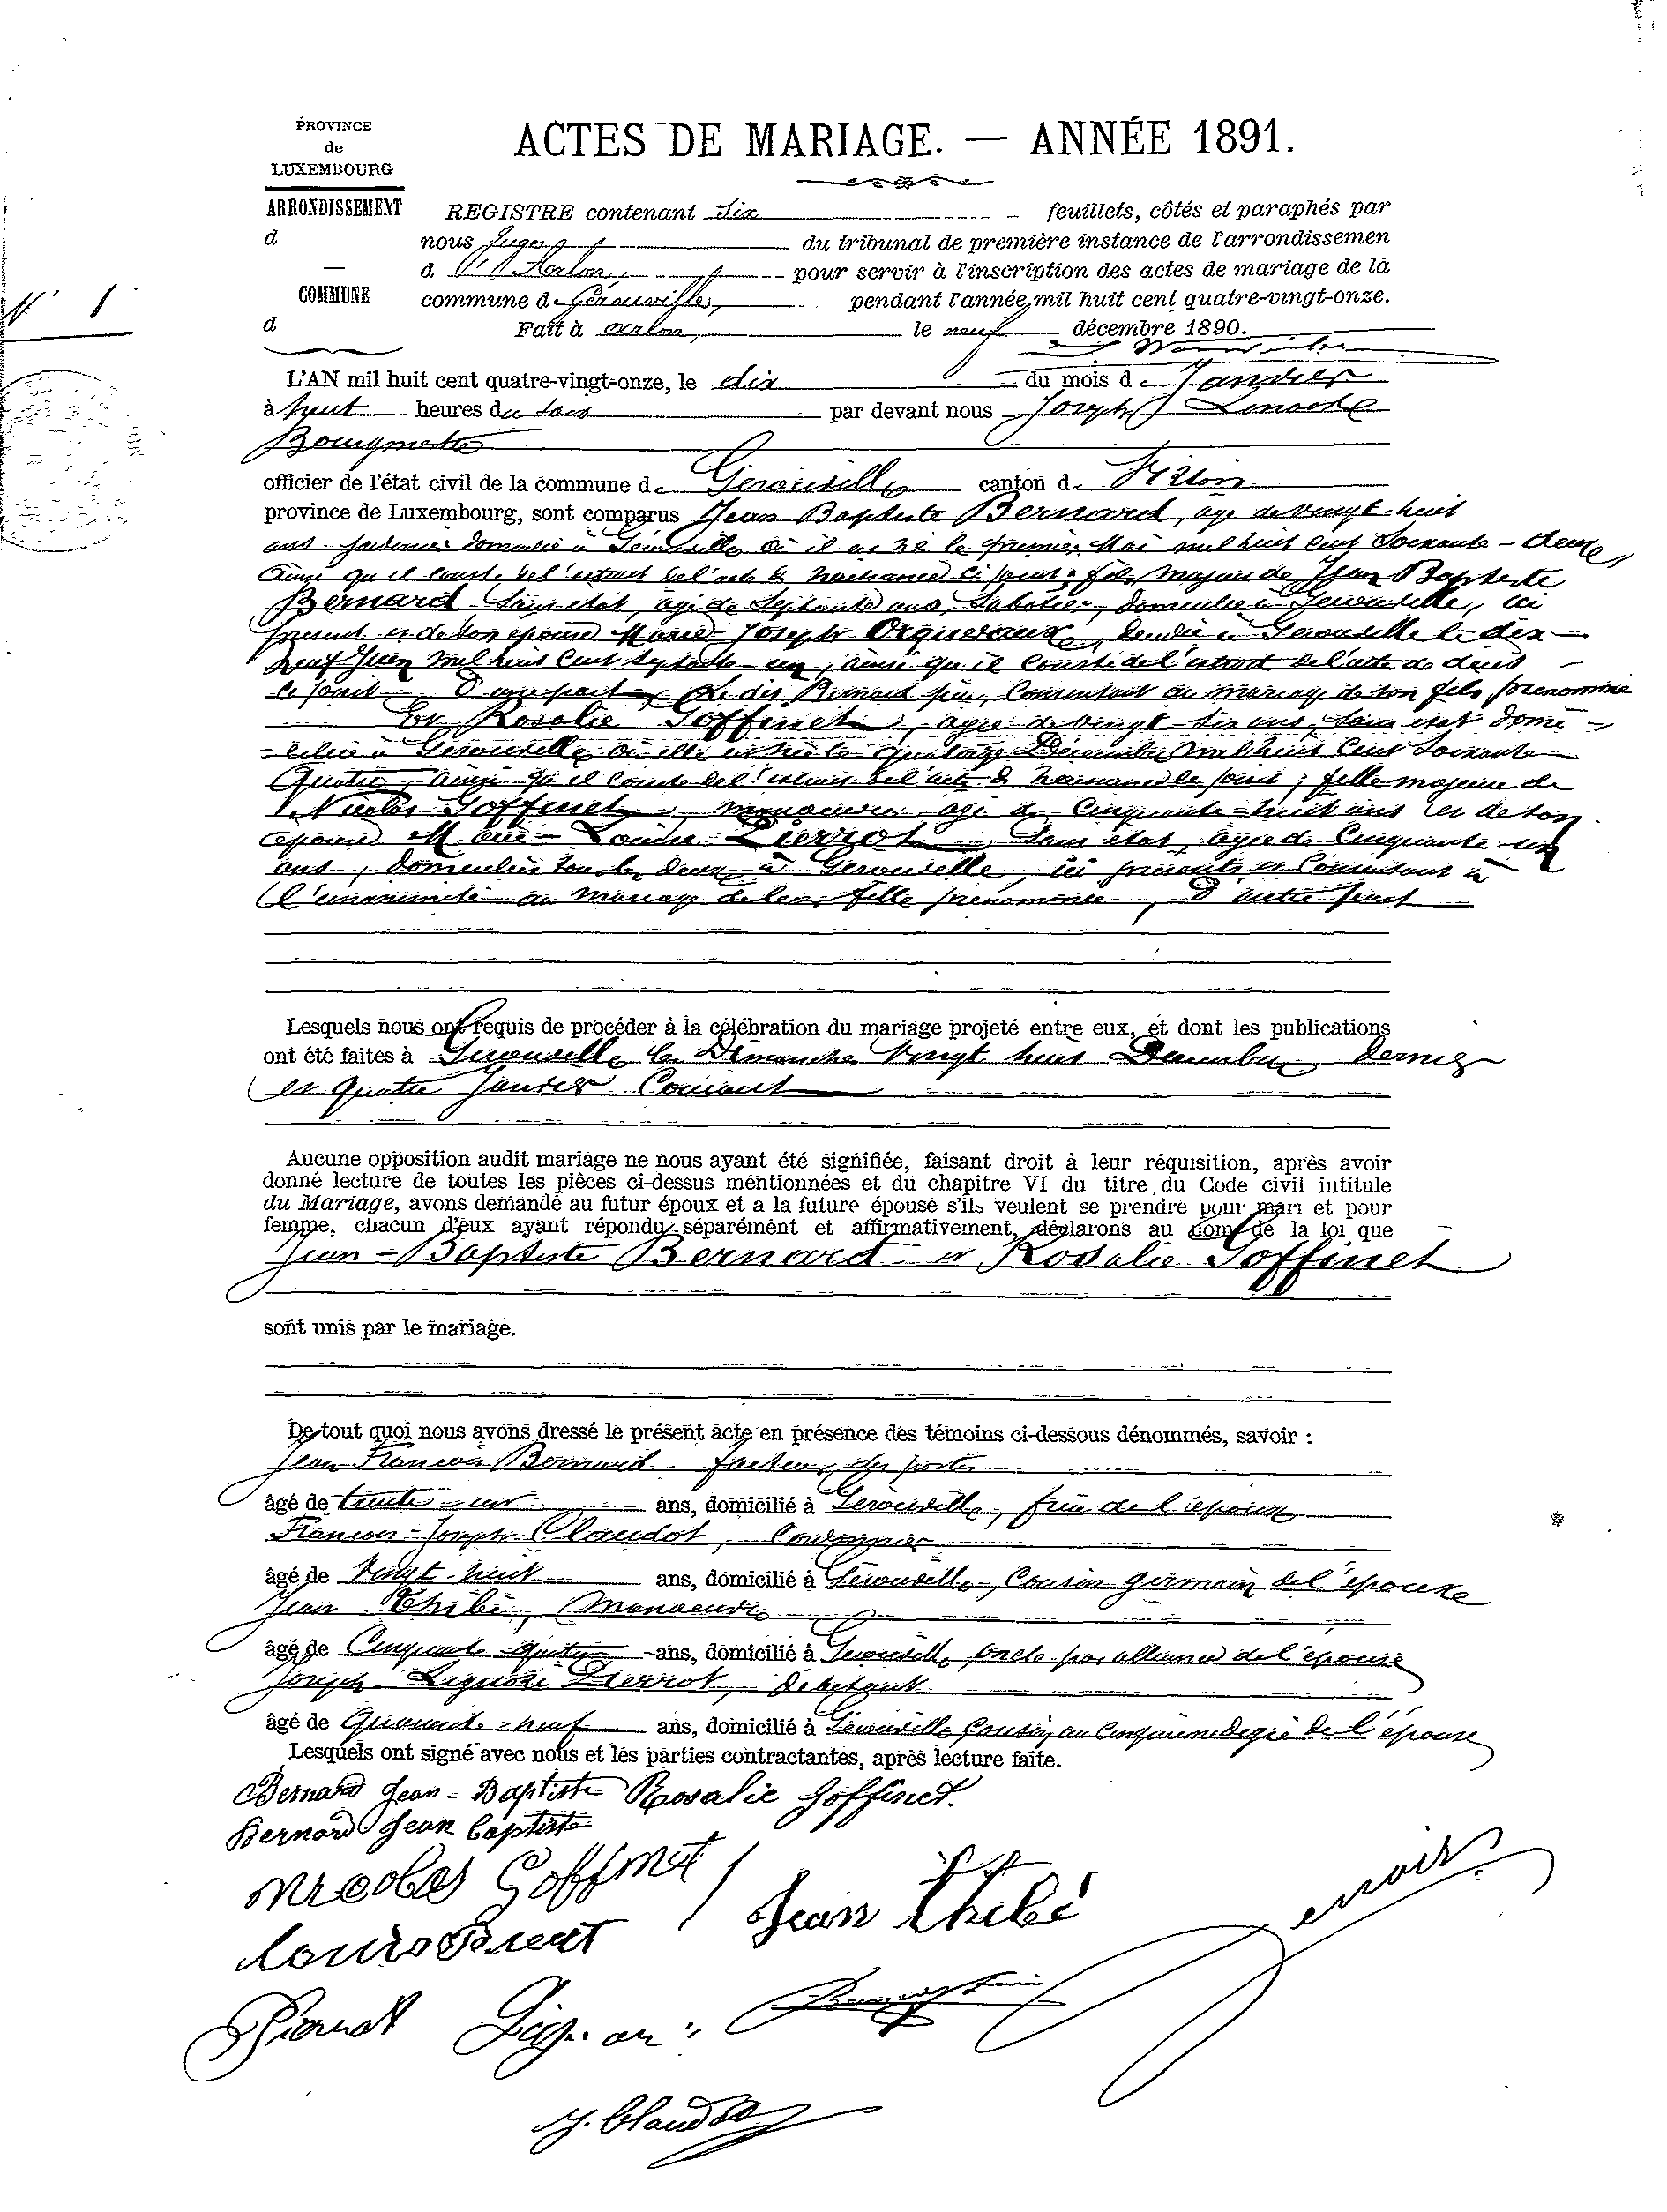 PROVINCE
de
LUXEMBOURG
ACTES DE MARIAGE. — ANNÉE 1891.
ARRONDISSEMENT
d
—
COMMUNE
d
N° 1
REGISTRE contenant Six feuillets, côtés et paraphés par
nous Juge du tribunal de première instance de l'arrondissemen
d' Arlon, pour servir à l'inscription des actes de mariage de la
commune de Gérouville, pendant l'année mil huit cent quatre-vingt-onze.
Fait à Arlon, le neuf décembre 1890.
L'AN mil huit cent quatre-vingt-onze, le dix du mois de Janvier
à huit heures du soir par devant nous Joseph
Bourgmestre
officier de l'état civil de la commune de Gérouville canton de Virton
province de Luxembourg, sont comparus Jean Baptiste Bernard, âgé de vingt-huit
ans domicilié à Gérouville où il est né le premier Mai mil huit cent soixante-deux,
ainsi qu'il conste de l'extrait de l'acte de naissance ci joint; fils majeur de Jean Baptiste
Bernard sans état, âgé de septante ans, sabotier, domicilié à Gérouville, ici
présent et de son épouse Marie-Joseph Orqueraux, décédée à Gérouville le dix-
neuf Juin mil huit cent septante-un, ainsi qu'il conste de l'extrait de l'acte de décès
ci joint, D'une part, le dit Bernard père, consentant au mariage de son fils prénommé
Et Rosalie Goffinet, âgée de vingt-six ans, sans état domi-
ciliée à Gérouville où elle est née le quatorze Décembre mil huit cent soixante
quatre, ainsi qu'il conste de l'extrait de l'acte de naissance ci joint; fille majeure de
Nicolas Goffinet, manoeuvre âgé de cinquante-huit ans et de son
épouse Marie-Louise Pierrot, sans état, âgée de cinquante-un
ans, domiciliés tous les deux à Gérouville, ici présents et consentant à
l'unanimité au mariage de leur fille prénommée, D'autre part
Lesquels nous ont requis de procéder à la célébration du mariage projeté entre eux, et dont les publications
ont été faites à Gérouville les Dimanches vingt huit Décembre dernier
et quatre Janvier Courant
Aucune opposition audit mariage ne nous ayant été signifiée, faisant droit à leur réquisition, après avoir
donné lecture de toutes les pièces ci-dessus mentionnées et du chapitre VI du titre du Code civil intitule
du Mariage, avons demandé au futur époux et a la future épouse s'ils veulent se prendre pour mari et pour
femme, chacun d'eux ayant répondu séparément et affirmativement, déclarons au nom de la loi que
Jean-Baptiste Bernard et Rosalie Goffinet
sont unis par le mariage.
De tout quoi nous avons dressé le présent acte en présence des témoins ci-dessous dénommés, savoir :
Jean François Bernard facteur des postes
âgé de trente-un ans, domicilié à Gérouville, frère de l'époux
François-Joseph Claudot, Cordonnier
âgé de vingt-huit ans, domicilié à Gérouville, Cousin germain de l'épouse
Jean Thibé, Manoeuvre
âgé de Cinquante-quatre ans, domicilié à Gérouville, oncle par alliance de l'épouse
Joseph Liguori Pierrot, Débitant
âgé de Quarante-neuf ans, domicilié à Gérouville Cousin au Cinquième degré de l'épouse
Lesquels ont signé avec nous et les parties contractantes, après lecture faite.
Bernard Jean-Baptiste Rosalie Goffinet.
Bernard Jean baptiste
Nicolas Goffinet
Jean Thibé
Pierrot
J. Claudot